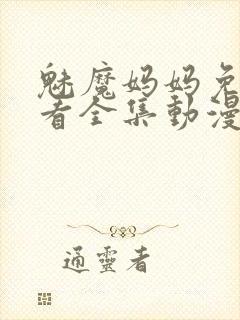 魅魔妈妈免
看全集動漫
通靈者